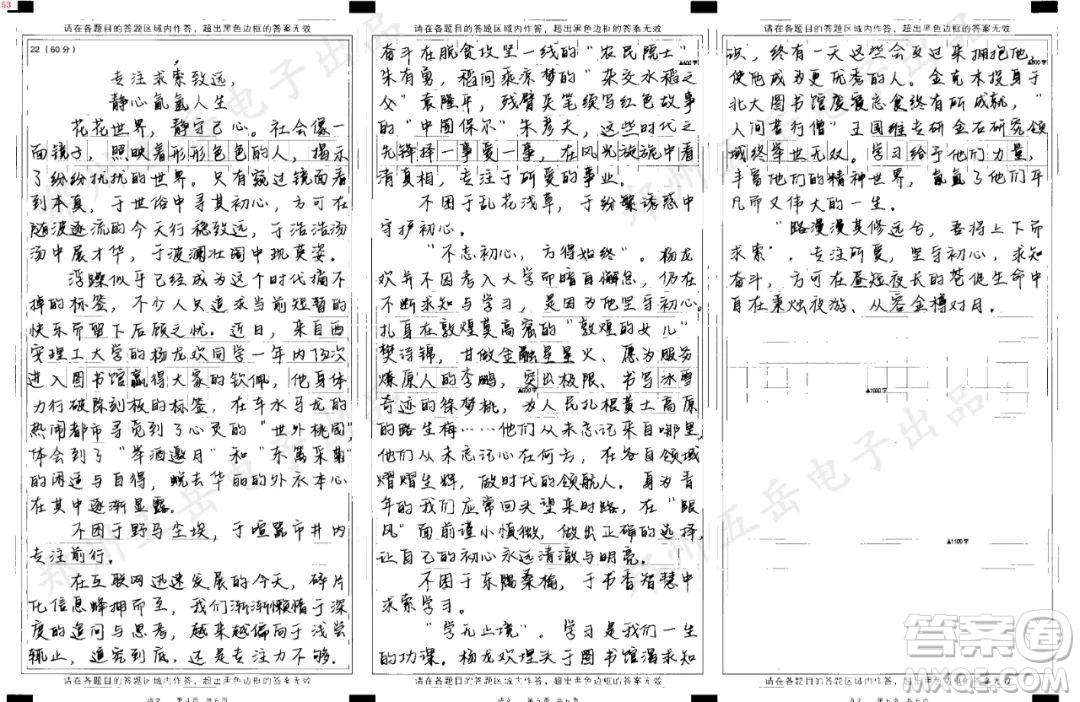 53
请在各题目的答题区域内作答，超出黑色边框的答案无效
22（60分）
专注求索致远，
静心氤氲人生
花花世界，静守己心。社会像一
面镜子，照映着形形色色的人，揭示
了纷纷扰扰的世界。只有窥过镜面看
到本真，于世俗中寻其初心，方可在
随波逐流的今天行稳致远，于浩浩汤
汤中展才华，于波澜壮阔中现英姿。
浮躁似乎已经成为这个时代摘不
掉的标签，不少人只追求当前短暂的
快乐而留下后顾之忧。近日，来自西
安理工大学的杨龙欢同学一年内 次
进入图书馆赢得大家的钦佩，他身体
力行破除刻板的标签，在车水马龙的
热闹都市寻觅到了心灵的“世外桃园”，
体会到了“举酒邀月”和“东篱采菊”
的闲适与自得，蜕去华丽的外衣本心
在其中逐渐显露。
不困于野马尘埃，于喧嚣市井内
专注前行。
在互联网迅速发展的今天，碎片
化信息蜂拥而至，我们渐渐懒惰于深
度的追问与思考，越来越偏向于浅尝
辄止，追究到底，还是专注力不够。
请在各题目的答题区域内作答，超出黑色边框的答案无效
语文 第4页 共6页
请在各题目的答题区域内作答，超出黑色边框的答案无效
奋斗在脱贫攻坚一线的“农民院士”
朱有勇，稻间乘凉梦的“杂交水稻之
父”袁隆平，残臂夹笔续写红色故事
的“中国保尔”朱彦夫，这些时代之
先锋择一事爱一事，在风光旖旎中看
清真相，专注于所爱的事业。
不困于乱花浅草，于纷繁诱惑中
守护初心。
“不忘初心，方得始终”。杨龙
欢并不因考入大学而暗自懈怠，仍在
不断求知与学习，是因为他坚守初心。
扎身在敦煌莫高窟的“敦煌的女儿”
樊诗锦，甘做金融星星火、愿为服务
燎原人的李鹏，突出极限、书写冰雪
奇迹的徐梦桃，为人民扎根黄土高原
的路生梅……他们从未忘记来自哪里，
他们从未忘记心在何方，在各自领域
熠熠生辉，做时代的领航人。身为青
年的我们应常回头望来时路，在“眼
风”面前谨小慎微，做出正确的选择，
让自己的初心永远清澈与明亮。
不困于东隅桑榆，于书香智慧中
求索学习。
“学无止境”。学习是我们一生
的功课。杨龙欢埋头于图书馆渴求知
请在各题目的答题区域内作答，超出黑色边框的答案无效
语文 第5页 共6页
请在各题目的答题区域内作答，超出黑色边框的答案无效
识，终有一天这些会反过来拥抱他，
使他成为更优秀的人。金克木投身于
北大图书馆废寝忘食终有所成就，“
人间苦行僧”王国维专研金石研究领
域终举世无双。学习给于他们力量，
丰富他们的精神世界，氤氲了他们平
凡而又伟大的一生。
“路漫漫其修远兮，吾将上下而
求索”。专注所爱，坚守初心，求知
奋斗，方可在昼短夜长的苍促生命中
自在秉烛夜游、从容金樽对月。
▲1000字
▲1100字
请在各题目的答题区域内作答，超出黑色边框的答案无效
语文 第6页 共6页
郑州五岳电子出品
郑州五岳电子出品
郑州五岳电子出品
答案圈
MXQE.COM